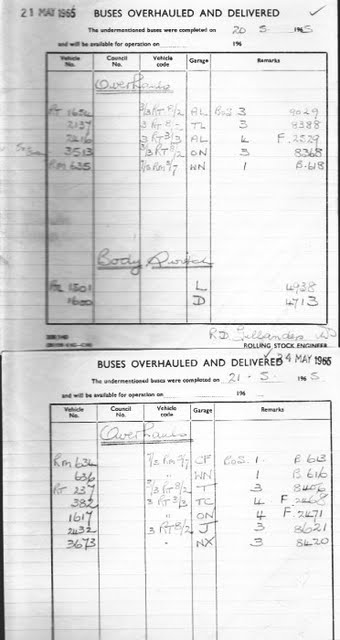 21 MAY 1965 BUSES OVERHAULED AND DELIVERED
The undermentioned buses were completed on 20 - 5 - 1965
and will be available for operation on 196
Vehicle No. Council No. Vehicle code Garage Remarks
Overhauls
RT 1654 AL BoS. 3 9029
2137 TL 3 8388
2216 AL 4 F. 2529
3513 ON 3 8368
RM 635 WN 1 B.618
Body
1501 L 4938
1600 D 4713
R D Gillanders
ROLLING STOCK ENGINEER
BUSES OVERHAULED AND DELIVERED 24 MAY 1965
The undermentioned buses were completed on 21 - 5 - 1965.
and will be available for operation on 196
Vehicle No. Council No. Vehicle code Garage Remarks
Overhauls
RM 634 CF BoS. 1 B.613
636 WN 1 B.616
RT 237 T 3 8406
382 TC 4 F 2468
1617 " ON 4 F.2471
2432 3 RT 8/2 J 3 8621
3673 NX 3 8420